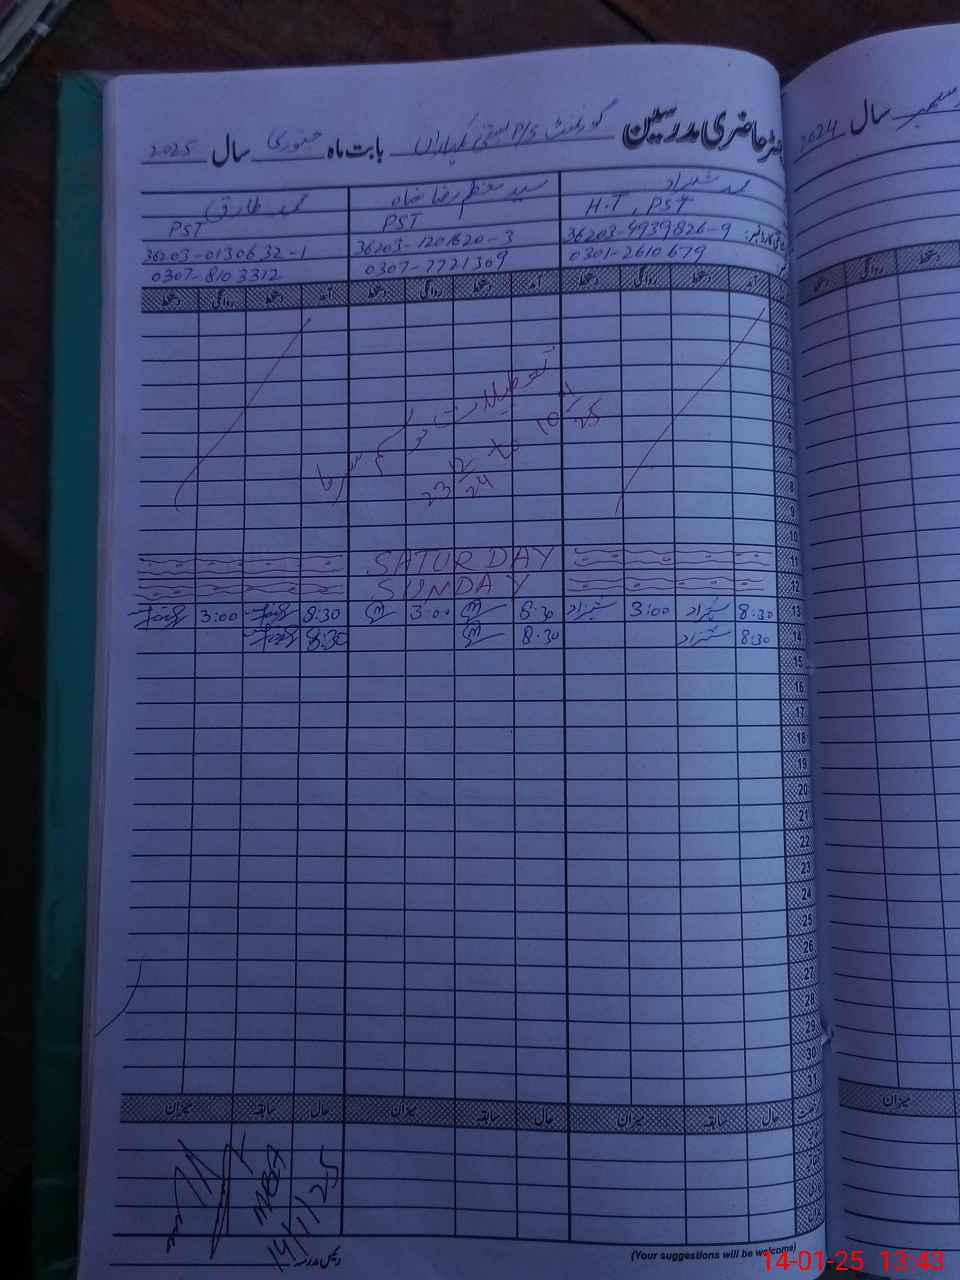 رجسٹر حاضری مدرسین گورنمنٹ P/S بستی بابت ماہ جنوری سال 2025
سال 2024
محمد شہزاد
H.T, PST
36203-4939826-9
0301-2610679
سید معظم رضا شاہ
PST
36203-1201620-3
0307-7721309
محمد طارق
PST
36203-0130632-1
0307-8103312
آمد دستخط روانگی دستخط آمد دستخط روانگی دستخط آمد دستخط روانگی دستخط
دستخط روانگی دستخط
تعطیلات موسم سرما
23 12/24 to 10 1/25
5
6
7
8
9
10
11 SATURDAY
12 SUNDAY
13 8:30 شہزاد 3:00 شہزاد 8:30 3:00 8:30 3:00
14 8:30 شہزاد 8:30 8:30
15
16
17
18
19
20
21
22
23
24
25
26
27
28
29
30
31
حال سابقہ میزان حال سابقہ میزان حال سابقہ میزان
میزان
14/1/25
رئیس مدرسہ
(Your suggestions will be welcome)
14-01-25 13:43